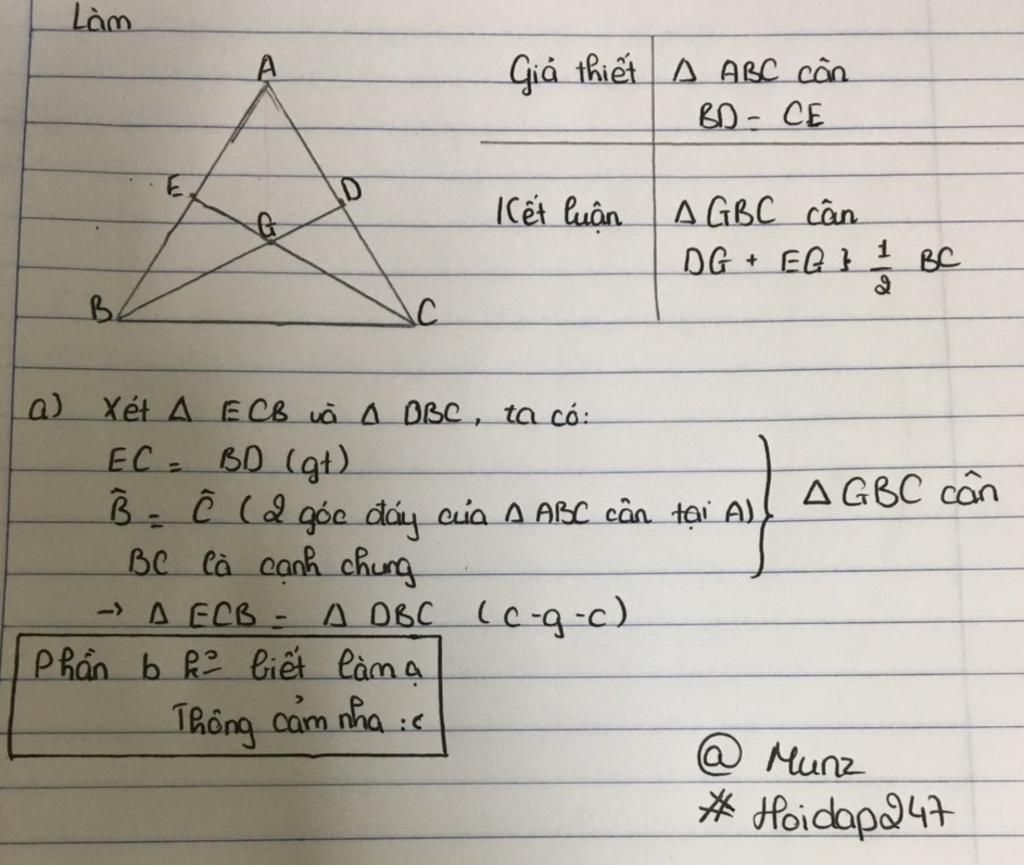 Làm
A
E
D
G
B
C
Giả thiết
Δ ABC cân
BD = CE
Kết luận
Δ GBC cân
DG + EG > 1/2 BC
a) Xét Δ ECB và Δ DBC, ta có:
EC = BD (gt)
B̂ = Ĉ (2 góc đáy của Δ ABC cân tại A)
BC là cạnh chung
} Δ GBC cân
→ Δ ECB = Δ DBC (c-g-c)
Phần b k² biết làm ạ
Thông cảm nha :<
@ Munz
# Hoidap247